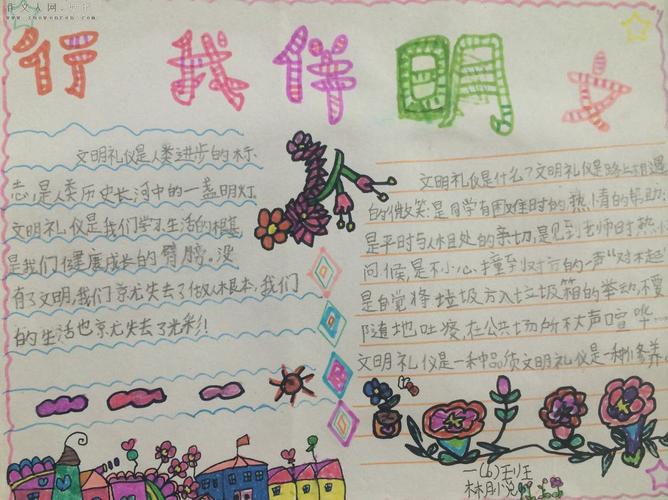 作文人网
www.zuowenren.com
文明伴我行
文明礼仪是人类进步的标
志,是人类历史长河中的一盏明灯.
文明礼仪是我们学习生活的根基
是我们健康成长的臂膀。没
有了文明,我们就失去了做人根本,我们
的生活也就失去了光彩!
文明礼仪是什么?文明礼仪是路上相遇
的微笑:是同学有困难时的热情的帮助
是平时与人相处的亲切,是见到老师时热
问候,是不小心撞到对方的一声“对不起”
是自觉将垃圾方入垃圾箱的举动,不要
随地吐痰,在公共场所不大声喧哗.
文明礼仪是一种品质文明礼仪是一种修养
一(6)班
林